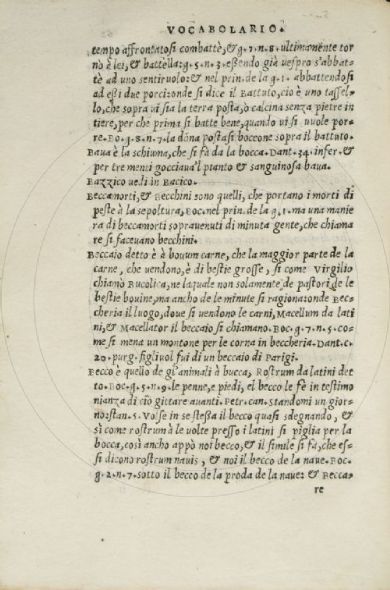 VOCABOLARIO.
tempo affrontatosi combattè, & g. 7. n. 8. ultimamente tor
nò è lei, & battella: g. 5. n. 3. essendo già vespro s'abbat-
tè ad uno sentiruolo: & nel prin. de la g. 1. abbattendosi
ad essi due porci. onde si dice il Battuto, cio è uno tassel-
lo, che sopra vi sia la terra posta, ò calcina senza pietre in
tiere, per che prima si batte bene, quando vi si vuole por-
re. Bo. g. 8. n. 7. la dóna postasi boccone sopra il battuto.
Baua è la schiuma, che si fà da la bocca. Dant. 34. infer. &
per tre menti gocciaua'l pianto & sanguinosa baua.
Bazzico vedi in Bacico.
Beccamorti, & Becchini sono quelli, che portano i morti di
peste à la sepoltura, Boc. nel prin. de la g. 1. ma una manie
ra di beccamorti sopravenuti di minuta gente, che chiama
re si faceuano becchini.
Beccaio detto è à bouum carne, che la maggior parte de la
carne, che vendono, è di bestie grosse, si come Virgilio
chiamò Bucolica, ne la quale non solamente de pastori, de le
bestie bouine, ma ancho de le minute si ragiona: onde Bec-
cheria il luogo, doue si vendono le carni, Macellum da lati
ni, & Macellator il beccaio si chiamano. Boc. g. 7. n. 5. co-
me si mena un montone per le corna in beccheria. Dant. c.
20. purg. figliuol fui di un beccaio di Parigi.
Becco è quello de gl'animali à bucca, Rostrum da latini det
to. Boc. g. 5. n. 9. le penne, e piedi, el becco le fè in testimo
nianza di ciò gittare auanti. Petr. can. Standomi un gior-
no: stan. 5. Volse in se stessa il becco quasi sdegnando, &
sì come rostrum à le volte presso i latini si piglia per la
bocca, così ancho appò noi becco, & il simile si fà, che es-
si dicono rostrum nauis, & noi il becco de la naue. Boc.
g. 2. n. 7. sotto il becco de la proda de la naue: & Becca-
re